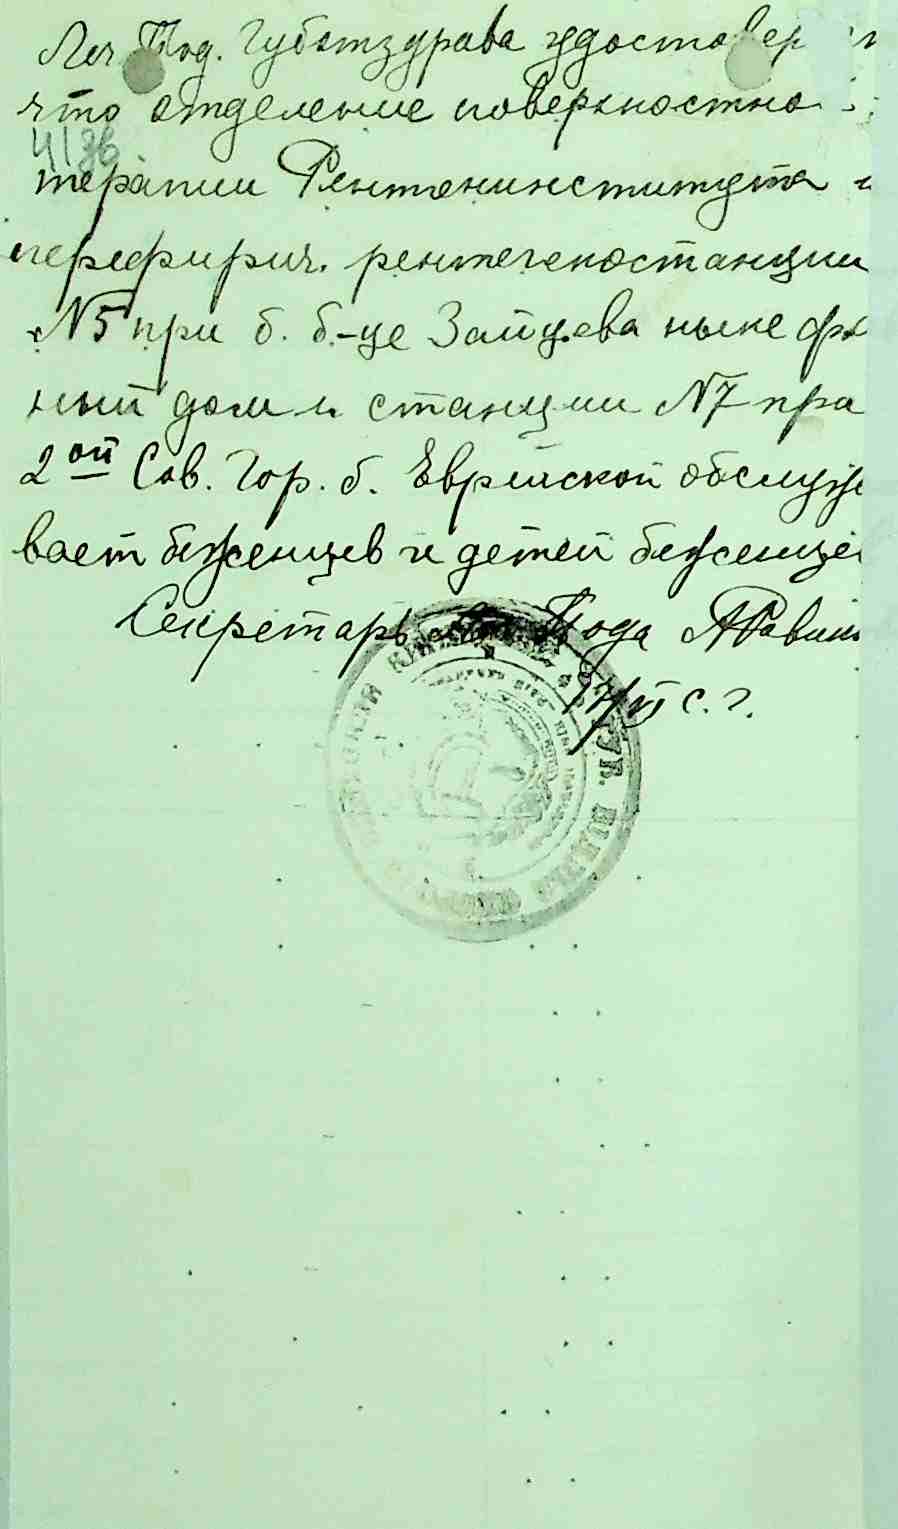 Леч Под. Губотздрава удостовер
что отделение поверхностно
терапии Рентгенинститута и
перефирич. рентгеностанции
№5 при б. б-це Зайцева ныне
ный дом и станции №7 при
2ой Сов. Гор. б. Еврейской обслужи
вает беженцев и детей беженце
Секретарь Леч. Пода
17/VI с. г.
ГУБ. ВІДДІЛ